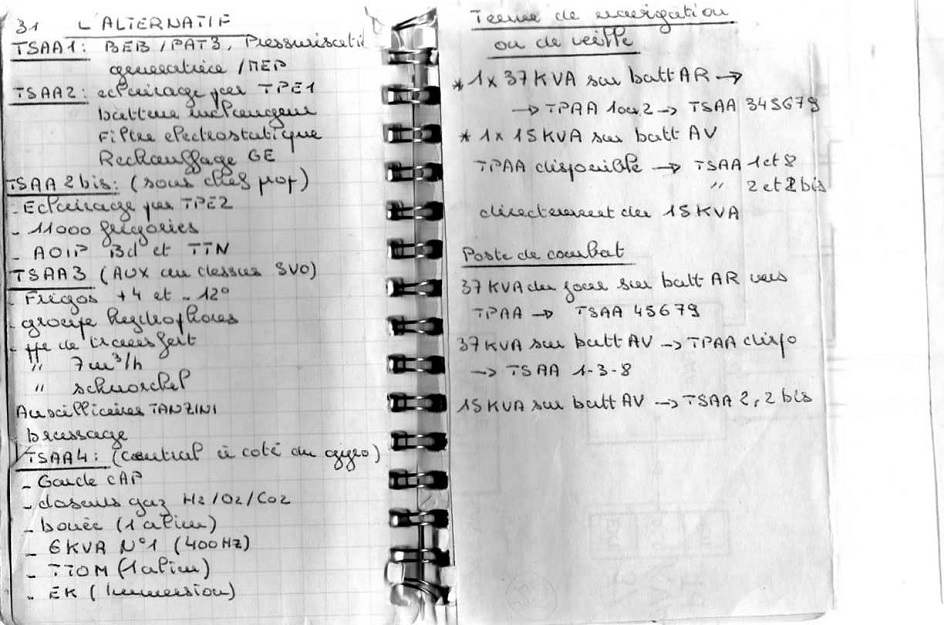 31 L'ALTERNATIF
TSAA1: BEB/PAT3, Pressurisati
generatrice /MEP
TSAA2: eclairage par TPE1
batterie melangeur
Filtre electrostatique
Rechauffage GE
TSAA 2 bis: (sous chef prop)
- Eclairage par TPE2
- 11000 frigories
- AOIP Bd et TTN
TSAA3 (AUX au dessus SVO)
- Frigos +4 et -12°
- groupe hydrophores
- ppe de transfert
" 7 m³/h
" schnorchel
Auxilliaires TANZINI
- brassage
TSAA4: (central à coté du gyro)
- Garde CAP
- doseurs gaz H2/O2/CO2
- bouée (1 alim)
- 6KVA N°1 (400HZ)
- TTOM (1 alim)
- EK (Immersion)
Tenue de navigation
ou de veille
* 1 x 37 KVA sur batt AR →
→ TPAA 1 ou 2 → TSAA 345679
* 1 x 15 KVA sur batt AV
TPAA disponible → TSAA 1 et 8
" 2 et 2 bis
directement du 15 KVA
Poste de combat
37 KVA du jour sur batt AR vers
TPAA → TSAA 45679
37 KVA sur batt AV → TPAA dispo
→ TSAA 1-3-8
15 KVA sur batt AV → TSAA 2, 2 bis